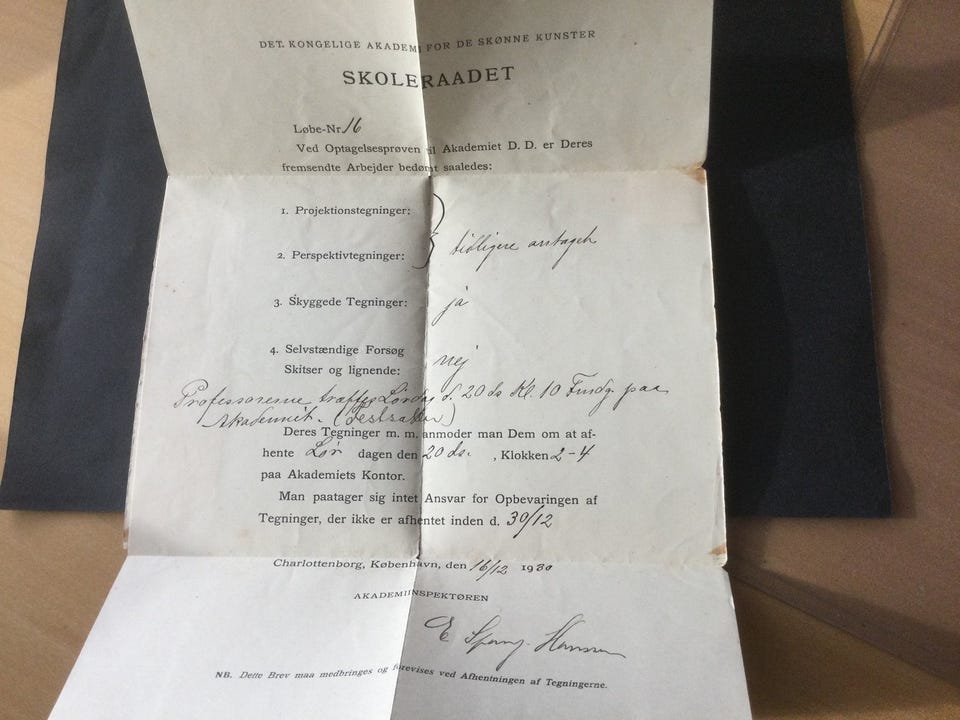 DET. KONGELIGE AKADEMI FOR DE SKØNNE KUNSTER
SKOLERAADET
Løbe-Nr. 16
Ved Optagelsesprøven til Akademiet D. D. er Deres
fremsendte Arbejder bedømt saaledes:
1. Projektionstegninger:
tidligere antaget
2. Perspektivtegninger:
3. Skyggede Tegninger: ja
4. Selvstændige Forsøg
nej
Skitser og lignende:
Professorerne træffes Lørdag d. 20 ds Kl. 10 Fmdg. paa
Akademiet. (Festsalen)
Deres Tegninger m. m. anmoder man Dem om at af-
hente Lør dagen den 20 ds. , Klokken 2-4
paa Akademiets Kontor.
Man paatager sig intet Ansvar for Opbevaringen af
Tegninger, der ikke er afhentet inden d. 30/12
Charlottenborg, København, den 16/12 1930
AKADEMIINSPEKTØREN
E Spang-Hanssen
NB. Dette Brev maa medbringes og forevises ved Afhentningen af Tegningerne.